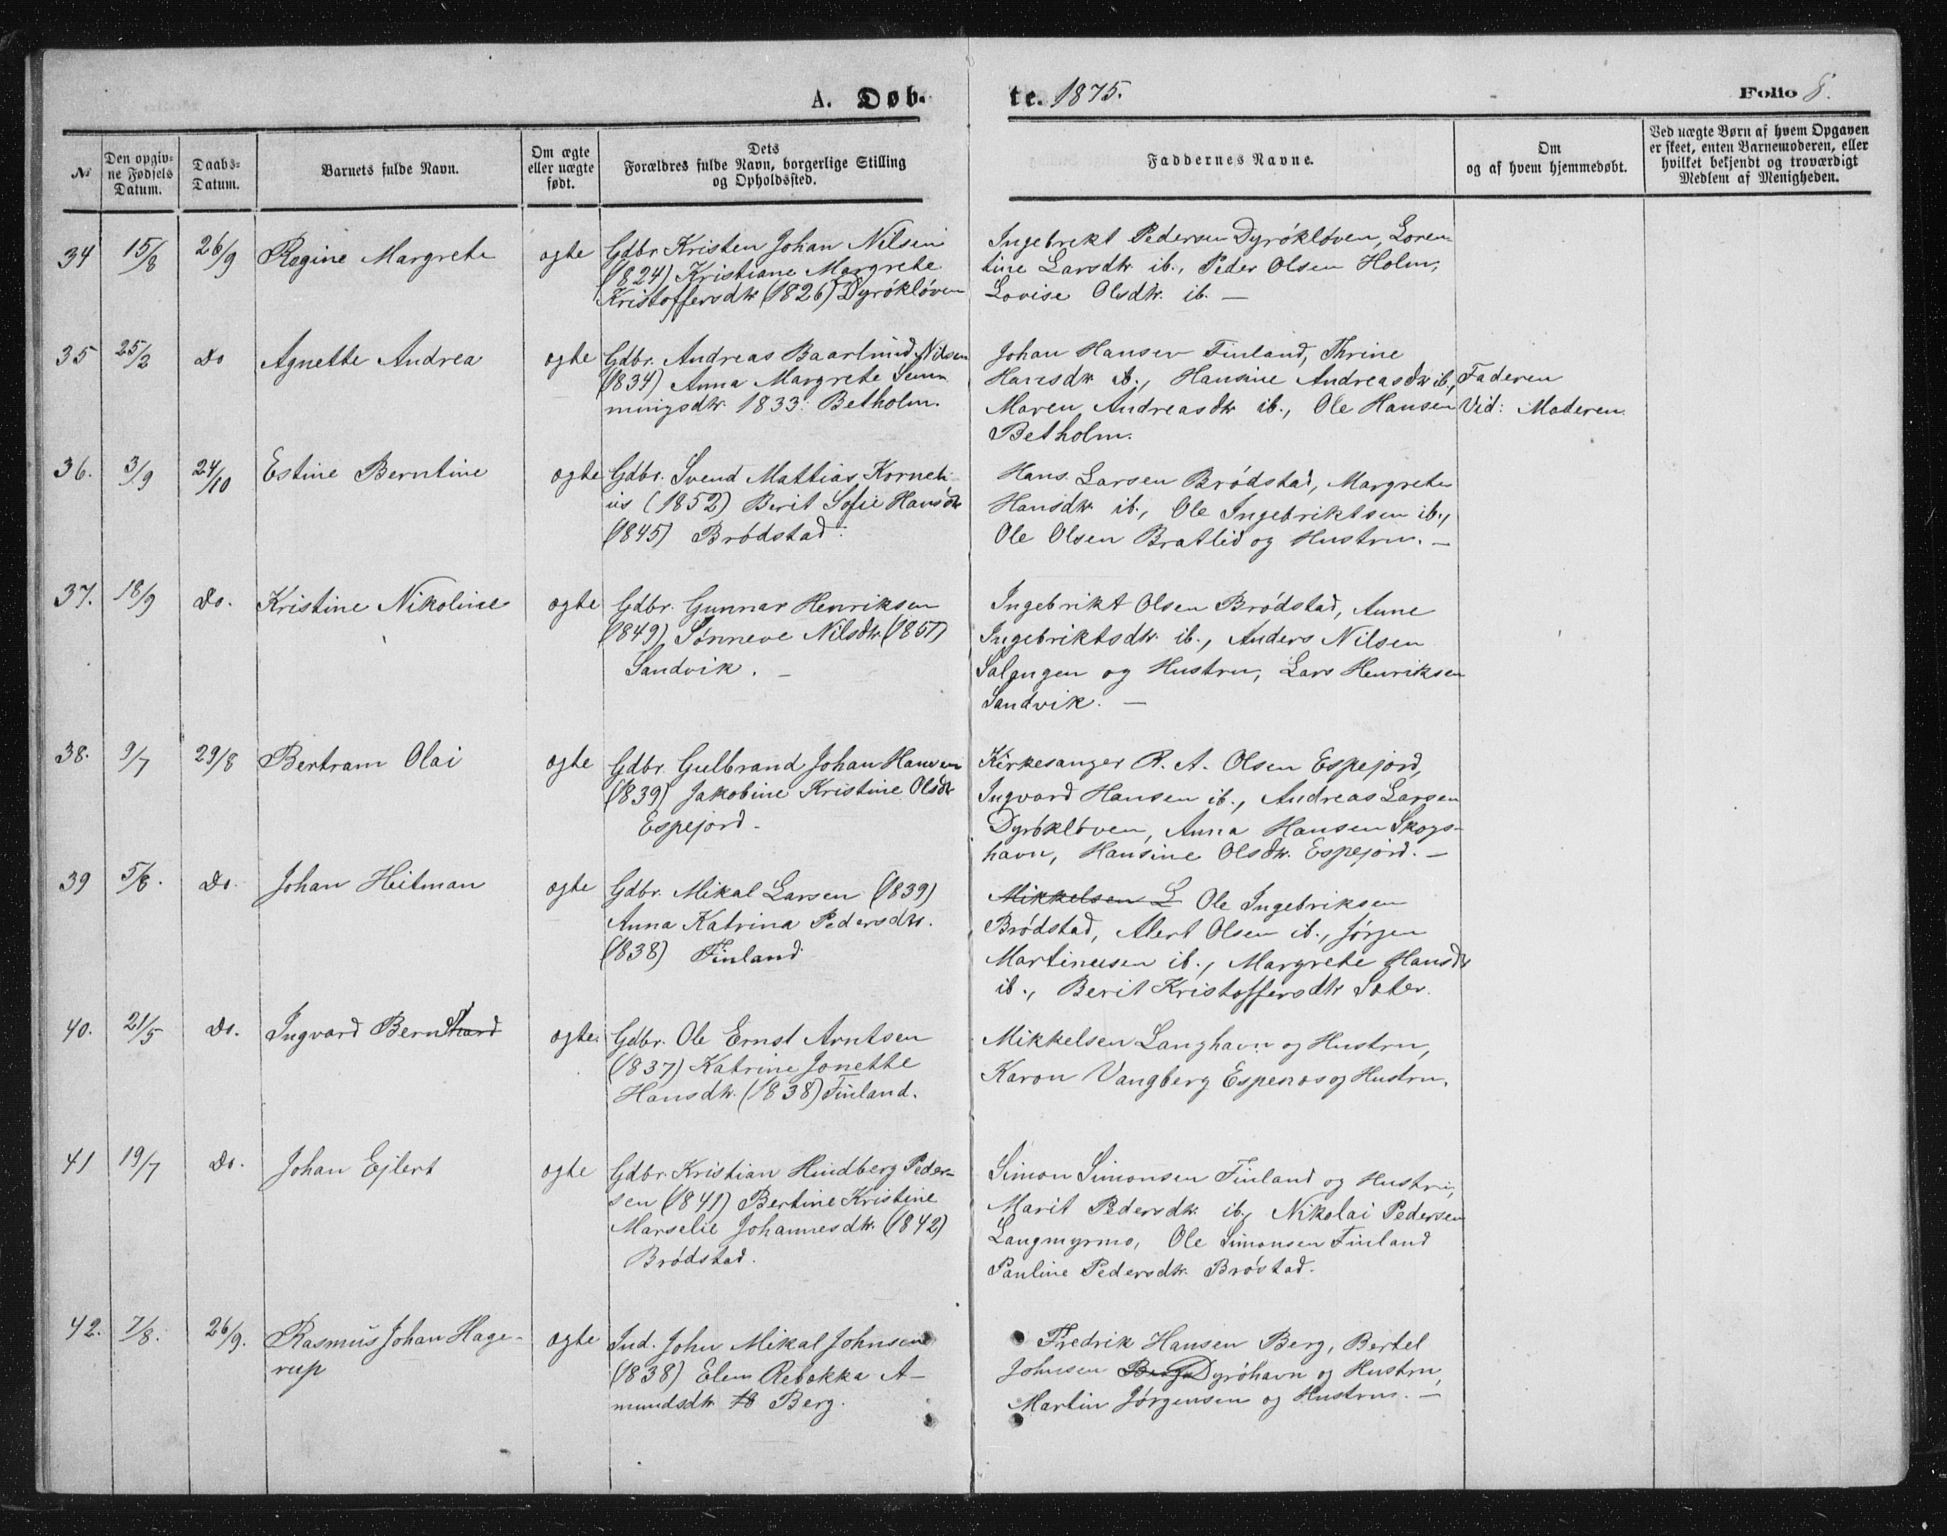 A. Døb-
te. 1875.
Folio 8.
№
Den opgiv-
ne Fødsels
Datum.
Daabs-
Datum.
Barnets fulde Navn.
Om ægte
eller uægte
født.
Dets
Forældres fulde Navn, borgerlige Stilling
og Opholdssted.
Faddernes Navne.
Om
og af hvem hjemmedøbt.
Ved uægte Børn af hvem Opgaven
er skeet, enten Barnemoderen, eller
hvilket bekjendt og troværdigt
Medlem af Menigheden.
34 15/8 26/9 Regine Margrete ogte
Gdbr Kristen Johan Nilsen
(1824) Kristiane Margrete
Kristoffersdtr (1826) Dyrökløven
Ingebrekt Pedersen Dyrökløven, Loren-
tine Larsdtr ib., Peder Olsen Holm,
Lovise Olsdtr. ib. —
35 25/2 Do Agnette Andrea ogte
Gdbr. Andreas Baarlund Nilsen
(1834) Anna Margrete Sem
mingsdtr. 1833. Betholm.
Johan Hansen Finland, Thrine
Hansdtr ib., Hansine Andreasdtr ib,
Maren Andreasdtr ib., Ole Hansen
Betholm.
Faderen
Vid: Moderen
36. 3/9 24/10 Estine Berntine ogte
Gdbr. Svend Mattias Korneli-
us (1852) Berit Sofie Hansdtr
(1845) Brödstad.
Hans Larsen Brödstad, Margrete
Hansdtr ib., Ole Ingebriktsen ib.,
Ole Olsen Bratlid og Hustru. —
37. 18/9 Do. Kristine Nikoline ogte
Gdbr. Gunnar Henriksen
(1849), Sönneve Nilsdtr. (1851)
Sandvik. —
Ingebrikt Olsen Brödstad, Anne
Ingebriktsdtr. ib., Anders Nilsen
Salangen og Hustru, Lars Henriksen
Sandvik. —
38. 9/7 29/8 Bertram Olai ogte
Gdbr. Gulbrand Johan Hansen
(1839) Jakobine Kristine Olsdtr
Espejord.
Kirkesanger R. A. Olsen Espejord,
Ingvard Hansen ib., Andreas Larsen
Dyrökløven, Anna Hansen Skogs-
havn, Hansine Olsdtr. Espejord. —
39 5/6. Do. Johan Heitman ogte
Gdbr. Mikal Larsen (1839)
Anna Katrina Pedersdtr.
(1838) Finland
Mikkelsen L Ole Ingebriksen
Brödstad, Alert Olsen ib., Jörgen
Martinusen ib., Margrete Hansdtr
ib., Berit Kristoffersdtr Sater.
40. 21/5 Do. Ingvard Berndthard ogte.
Gdbr. Ole Ernst Arntsen
(1837) Katrine Jonette
Hansdtr. (1838) Finland.
Mikkelsen Langhavn og Hustru,
Karon Vangberg Espenes og Hustru.
41 19/7 Do. Johan Ejlert ogte
Gdbr. Kristian Hindberg Peder-
sen (1841) Bertine Kristine
Marselie Johannesdtr. (1842)
Brödstad.
Simon Simonsen Finland og Hustru,
Marit Pedersdtr. ib., Nikolai Pedersen
Langmyrmo, Ole Simonsen Finland
Pauline Pedersdtr. Bröstad.
42. 7/8. 26/9. Rasmus Johan Hage-
rup
ogte
Ind. John Mikal Johnsen
(1838) Elen Rebekka A-
mundsdtr. 18 Berg.
Fredrik Hansen Berg, Bertel
Johnsen Berg Dyröhavn og Hustru,
Martin Jörgensen og Hustru. —